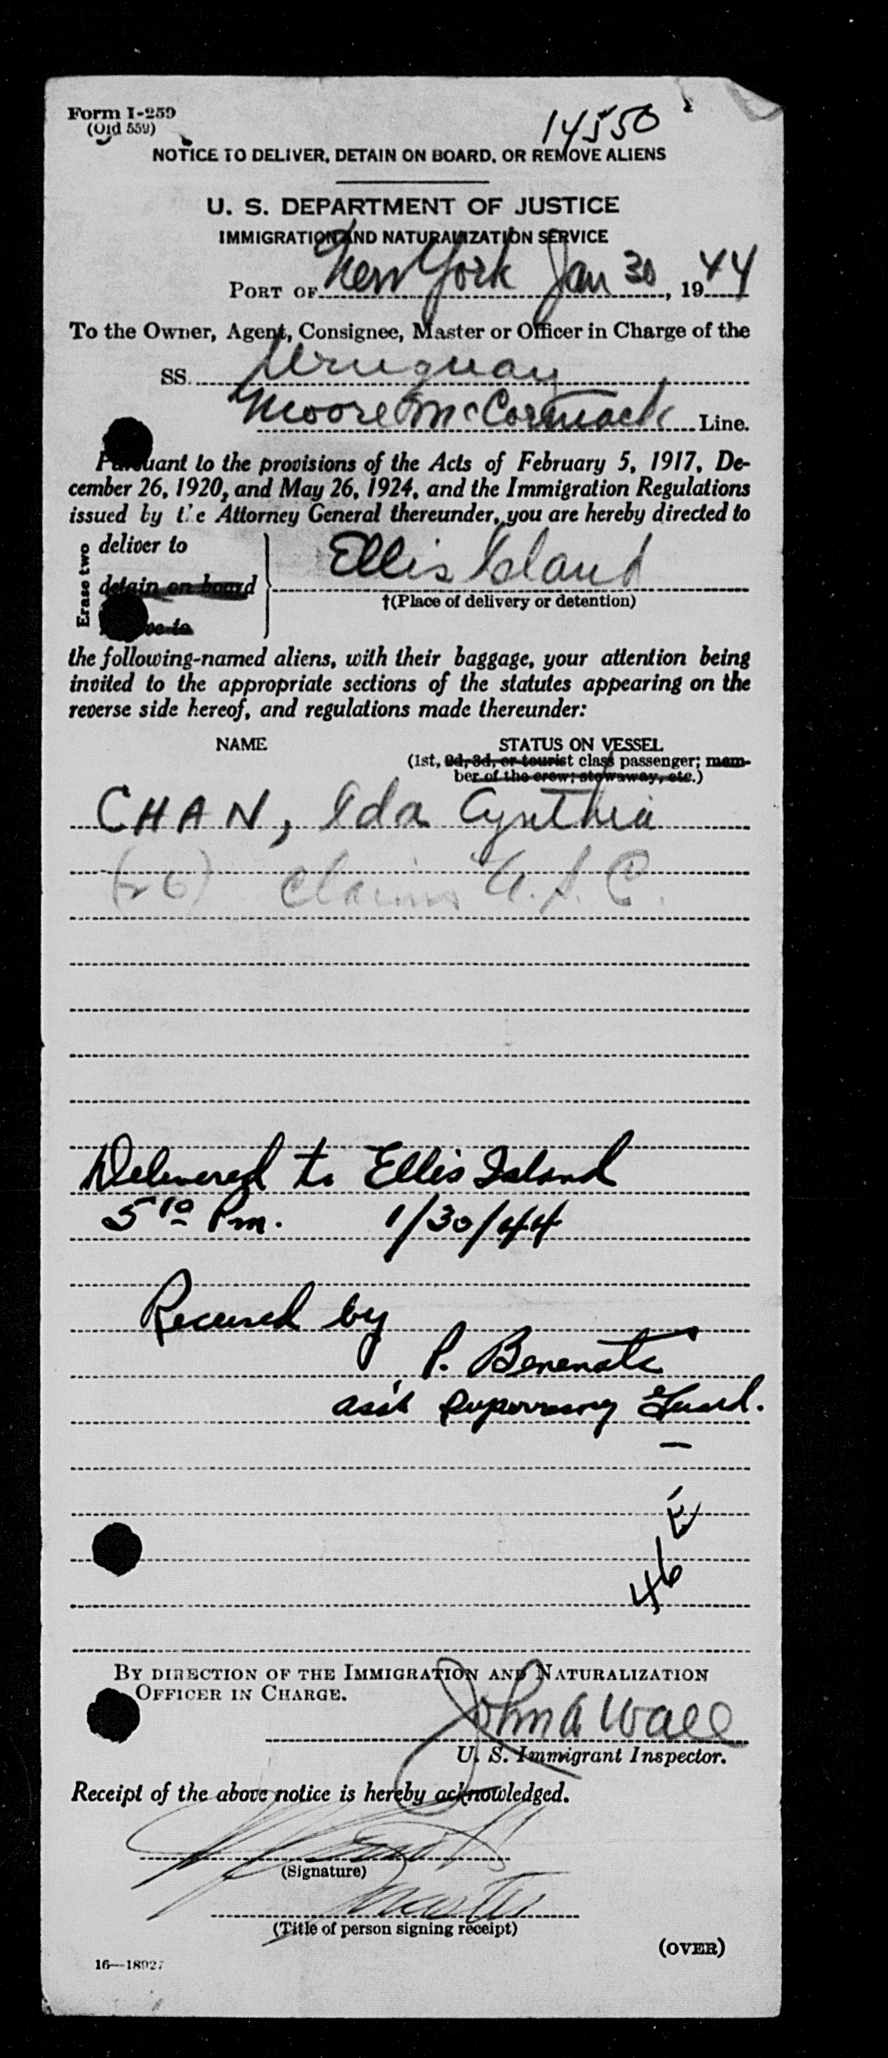 Form I-259
(Old 559)
14550
NOTICE TO DELIVER, DETAIN ON BOARD, OR REMOVE ALIENS
U. S. DEPARTMENT OF JUSTICE
IMMIGRATION AND NATURALIZATION SERVICE
PORT OF New York Jan 30, 1944
To the Owner, Agent, Consignee, Master or Officer in Charge of the
SS. Uruguay
Moore McCormack Line.
Pursuant to the provisions of the Acts of February 5, 1917, De-
cember 26, 1920, and May 26, 1924, and the Immigration Regulations
issued by the Attorney General thereunder, you are hereby directed to
Erase two
deliver to
detain on board
Ellis Island
†(Place of delivery or detention)
the following-named aliens, with their baggage, your attention being
invited to the appropriate sections of the statutes appearing on the
reverse side hereof, and regulations made thereunder:
NAME STATUS ON VESSEL
(1st, 2d, 3d, or tourist class passenger; mem-
ber of the crew; stowaway, etc.)
CHAN, Ida Cynthia
(26) Claims U.S.C.
Delivered to Ellis Island
5 10 Pm. 1/30/44
Received by
P. Benenate
ass't Supervisory Guard.
46 E
BY DIRECTION OF THE IMMIGRATION AND NATURALIZATION
OFFICER IN CHARGE.
John A Wall
U. S. Immigrant Inspector.
Receipt of the above notice is hereby acknowledged.
(Signature)
Master
(Title of person signing receipt)
(OVER)
16—18927